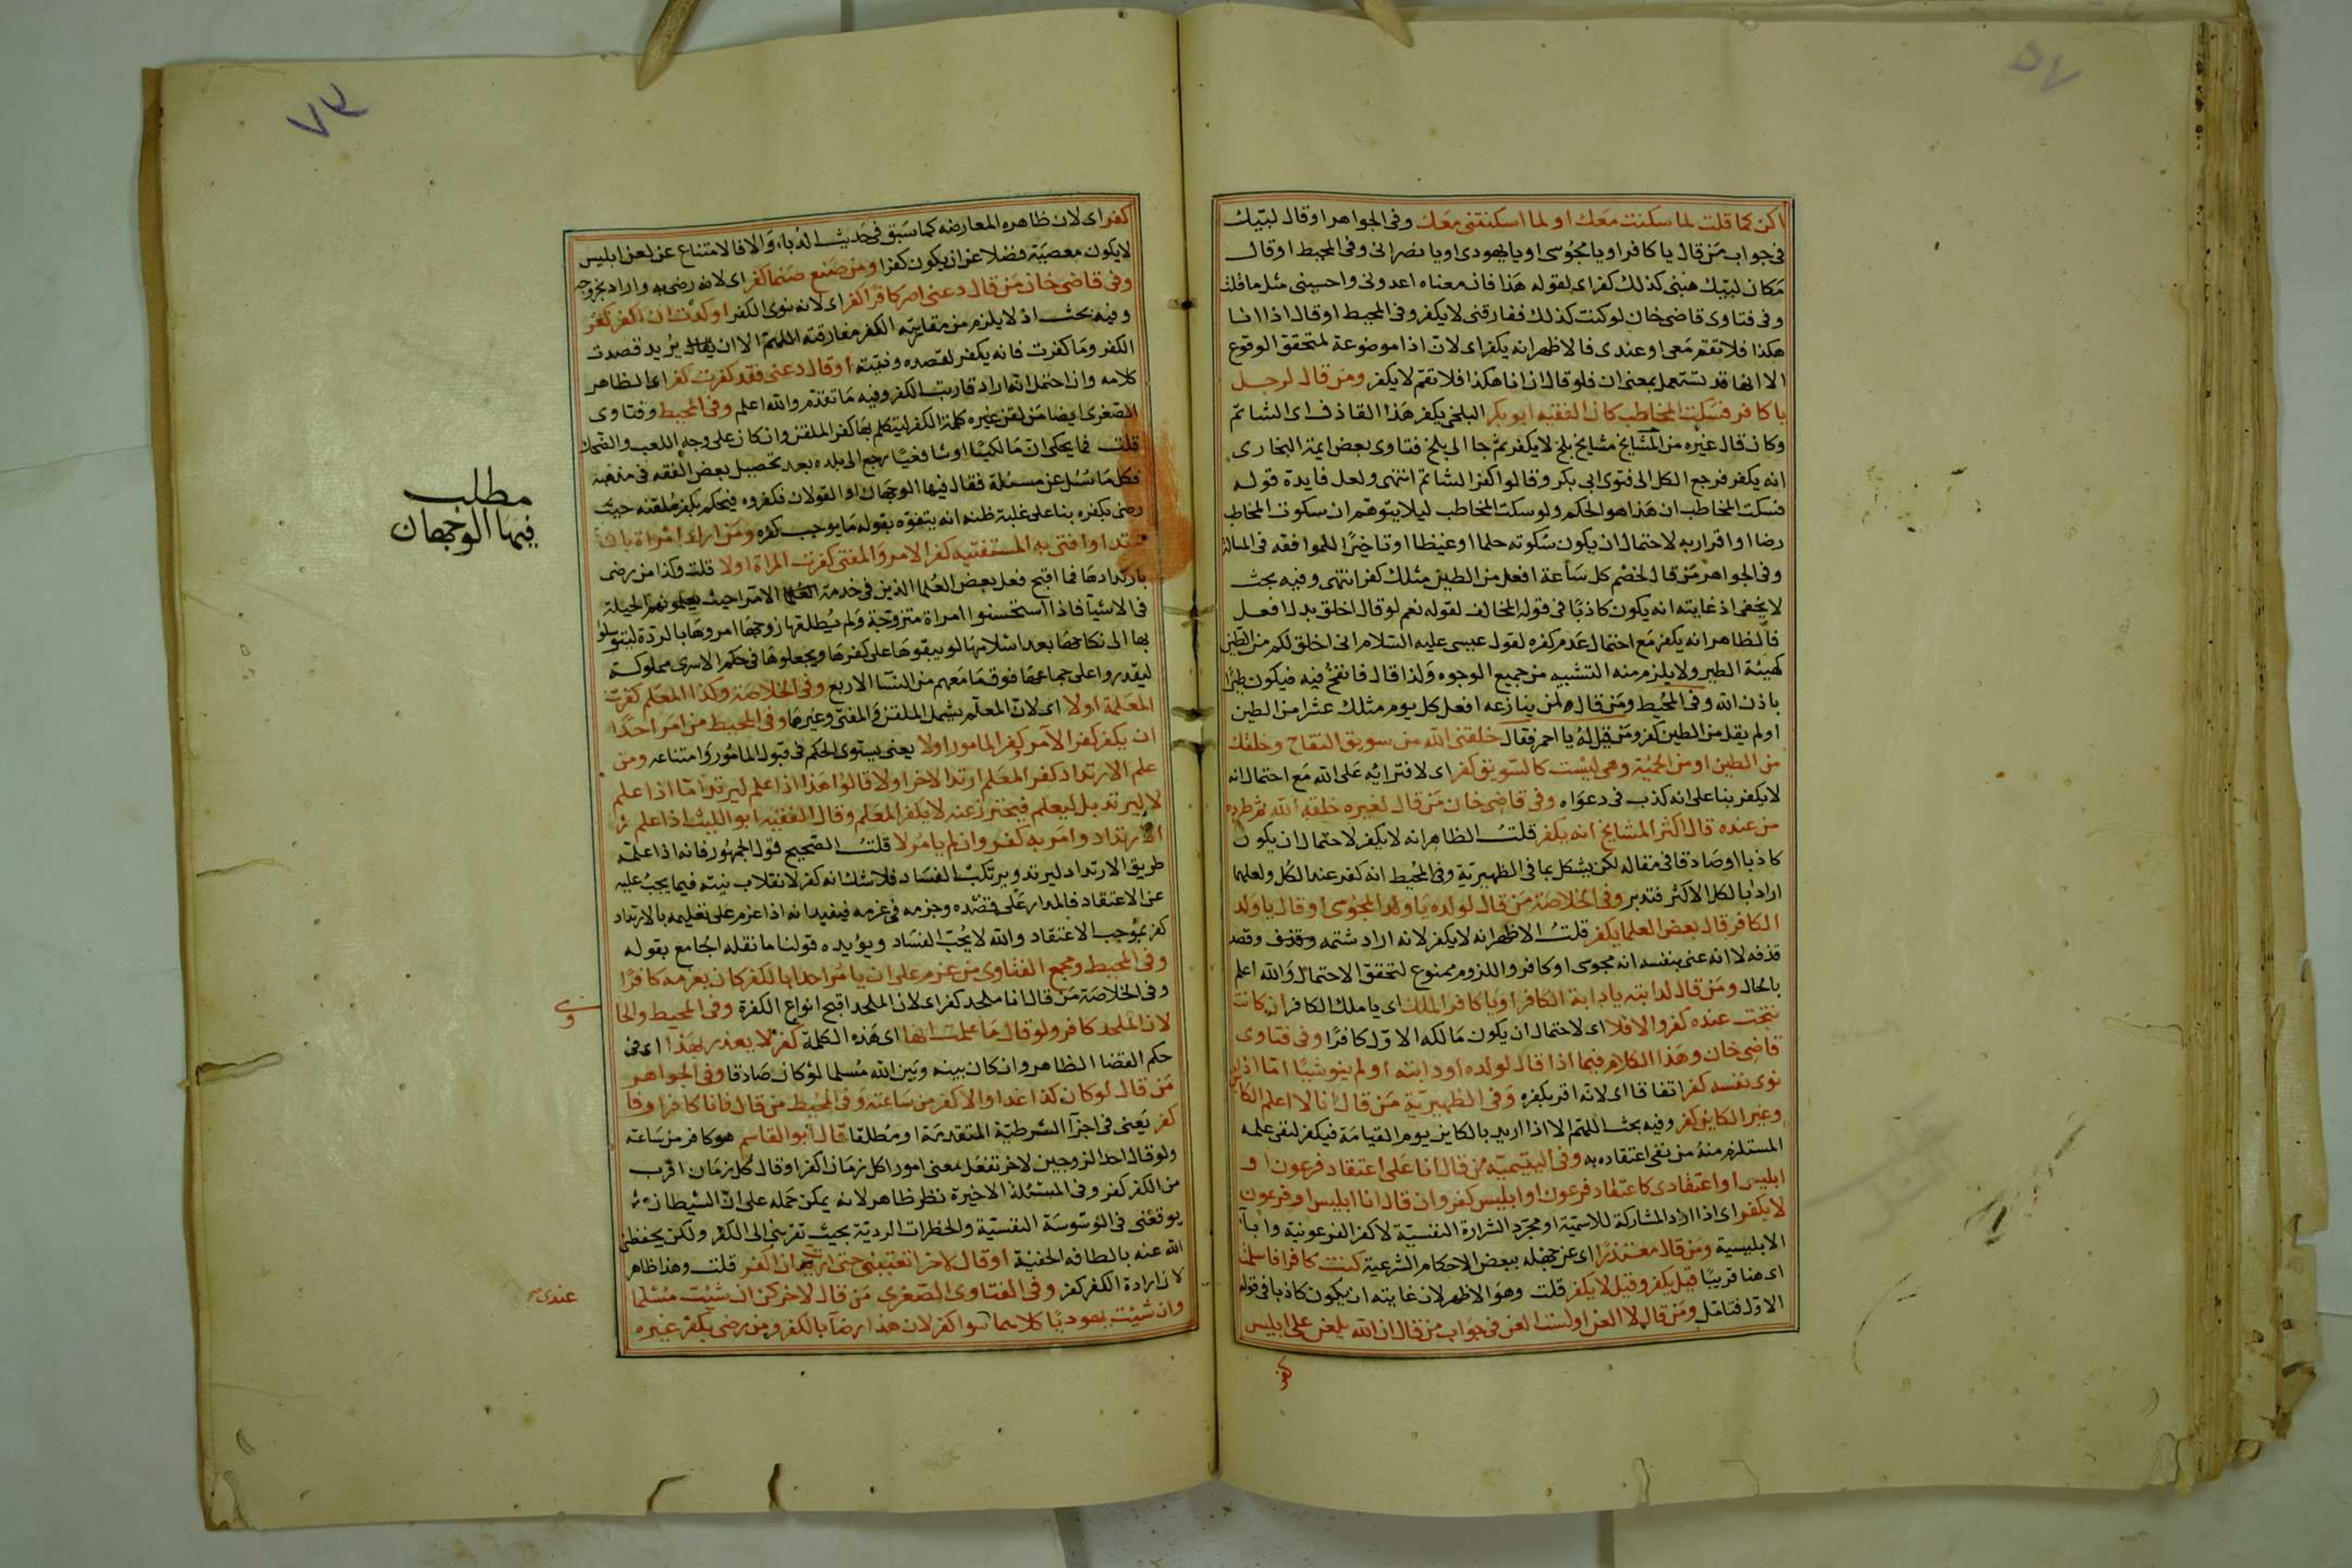 اكن كما قلت لما سكنت معك او لما اسكنتنى معك وفى الجواهر او قال لبيك
فى جواب من قال يا كافر او يا مجوسى او يا يهودى او يا نصرانى وفى المحيط او قال
مكان لبيك هبنى كذلك كفر اى لقوله هذا فان معناه اعدونى واحسبنى مثل ما قلت
وفى فتاوى قاضى خان لو كنت كذلك ففارقنى لا يكفر وفى المحيط او قال اذا انا
هكذا فلا تقم معى او عندى فالاظهر انه يكفر اى لان اذا موضوعة لمتحقق الوقوع
الا انها قد تستعمل بمعنى ان فلو قال ان انا هكذا فلا تقم لا يكفر ومن قال لرجل
يا كافر فسكت المخاطب كان الفقيه ابو بكر البلخى يكفر هذا القاذف اى الشاتم
وكان قال غيره من المشايخ مشايخ بلخ لا يكفر ثم جا الى بلخ فتاوى بعض ايمة البخارى
انه يكفر فرجع الكل الى فتوى ابى بكر وقالوا كفر الشاتم انتهى ولعل فايدة قوله
فسكت المخاطب ان هذا هو الحكم ولو سكت المخاطب ليلا يتوهم ان سكوت المخاطب
رضا او اقرار به لاحتمال ان يكون سكوته حلما او غيظا او تاخيرا للموافقه فى المسالة
وفى الجواهر من قال لخصم كل ساعة افعل من الطين مثلك كفر انتهى وفيه بحث
لا يخفى اذ غايته انه يكون كاذبا فى قوله المخالف لقوله نعم لو قال اخلق بدل افعل
فالظاهر انه يكفر مع احتمال عدم كفره لقول عيسى عليه السلام انى اخلق لكم من الطين
كهيئة الطير ولا يلزم منه التشبيه من جميع الوجوه ولذا قال فانفخ فيه فيكون طيرا
باذن الله وفى المحيط ومن قال لمن ينازعه افعل كل يوم مثلك عشرا من الطين
او لم يقل من الطين كفر ومن قيل له يا احمر فقال خلقنى الله من سويق التفاح وخلقك
من الطين او من الحمية وهى ليست كالسويق كفر اى لافترائه على الله مع احتمال انه
لا يكفر بنا على انه كذب فى دعواه وفى قاضى خان من قال لغيره خلقه الله ثم طرده
من عنده قال اكثر المشايخ انه يكفر قلت الظاهر انه لا يكفر لاحتمال ان يكون
كاذبا او صادقا فى مقاله لكن يشكل بما فى الظهيرية وفى المحيط انه كفر عند الكل ولعلهما
اراد بالكل الاكثر فتدبر وفى الخلاصة من قال لولده يا ولد المجوسى او قال يا ولد
الكافر قال بعض العلما يكفر قلت الاظهر انه لا يكفر لانه اراد شتمه وقذف وقصد
قذفه لا انه عنى بنفسه انه مجوسى او كافر واللزوم ممنوع لتحقق الاحتمال والله اعلم
بالحال ومن قال لدابته يا دابة الكافر او يا كافر الملك اى يا ملك الكافر ان كانت
نتجت عنده كفر والا فلا اى لاحتمال ان يكون مالكه الاول كافرا وفى فتاوى
قاضى خان وهذا الكلام فيما اذا قال لولده او دابته او لم ينو شيئا اما اذا
نوى نفسه كفر اتفاقا اى لانه اقر بكفره وفى الظهيرية من قال انا لا اعلم الكاين
وغير الكاين كفر وفيه بحث اللهم الا اذا اريد بالكاين يوم القيامة فيكفر لنفى علمه
المستلزم منه من نفى اعتقاده به وفى اليتيمية من قال انا على اعتقاد فرعون او
ابليس او اعتقادى كاعتقاد فرعون او ابليس كفر وان قال انا ابليس او فرعون
لا يكفر اى اذا اراد المشاركة للاسمية او مجرد الشرارة النفسية لا كفر الفرعونية وابا
الابليسية ومن قال معتذرا اى عن جهله ببعض الاحكام الشرعية كنت كافرا فاسلمت
اى هنا قريبا قيل يكفر وقيل لا يكفر قلت وهو الاظهر لان غايته ان يكون كاذبا فى قوله
الاول فتامل ومن قال لا العن او لست العن فى جواب من قال ان الله يلعن على ابليس
كفر
كفر اى لان ظاهره المعارضه كما سبق فى حديث الدباء والا فالامتناع عن لعن ابليس
لا يكون معصية فضلا عن ان يكون كفرا ومن صنع صنما كفر اى لانه رضى به واراد
وفى قاضى خان من قال دعنى اصر كافرا كفر اى لانه نوى الكفر او كدت ان اكفر كفر
وفيه بحث اذ لا يلزم من مقاربته الكفر مفارقته اللهم الا ان يقال يريد قصدت
الكفر وما كفرت فانه يكفر لقصده ونيته او قال دعنى فقد كفرت كفر اى الظاهر
كلامه وان احتمل انه اراد قاربت الكفر وفيه ما تقدم والله اعلم وفى المحيط وفتاوى
الصغرى ايضا من لقن غيره كلمة الكفر ليتكلم بها كفر الملقن وان كان على وجه اللعب والضحك
قلت فما يحكى ان مالكيا او شافعيا رجع الى بلده بعد تحصيل بعض الفقه فى مذهبه
فكل ما سئل عن مسئلة فقال فيها الوجهان او القولان فكفروه فيحكم بكفر ملقنه حيث
رضى بكفره بنا على غلبة ظنه انه يتفوه بقوله ما يوجب كفره ومن امراة بان
ترتد او افتى به المستفتيه كفر الامر والمفتى كفرت المراة اولا قلت وكذا من رضى
بارتدادها فما اقبح فعل بعض العلما الذين فى خدمة الامرا حيث يعلمونهم الحيلة
فى الاشيا فاذا استحسنوا امراة متزوجة ولم يطلقها زوجها امروها بالردة ليتوسلوا
بها الى نكاحها بعد اسلامها او يبقوها على كفرها ويجعلوها فى حكم الاسرى مملوكة
ليقدروا على جماعها فوق ما معهم من النسا الاربع وفى الخلاصة وكذا المعلم كفرت
المعلمة اولا اى لان المعلم يشمل الملقن والمفتى وغيرها وفى المحيط من امر احدا
ان يكفر كفر الآمر كفر المامور اولا يعنى يستوى الحكم فى قبول المامور وامتناعه ومن
علم الارتداد كفر المعلم ارتد الاخر اولا قالوا هذا اذا علم ليرتد اما اذا علم
لا ليرتد بل ليعلم فيحترز عنه لا يكفر المعلم وقال الفقيه ابو الليث اذا علم
الارتداد وامر به كفر وان لم يامر لا قلت الصحيح قول الجمهور فانه اذا علمه
طريق الارتداد ليرتد ويرتكب الفساد فلا شك انه كفر لانقلاب نيته فيما يجب عليه
عن الاعتقاد فالمدار على قصده وجزمه فى عزمه فيفيد انه اذا عزم على تعليمه بالارتداد
كفر بموجب الاعتقاد والله لا يحب الفساد ويؤيده قولنا ما نقله الجامع بقوله
وفى المحيط ومجمع الفتاوى من عزم على ان يامر احدا بالكفر كان بعزمه كافرا
وفى الخلاصة من قال انا ملحد كفر اى لان الملحد اقبح انواع الكفرة وفى المحيط والحا
لان الملحد كافر ولو قال ما علمت انها اى هذه الكلمة كفر لا يعذر بهذا اى فى
حكم القضا الظاهر وان كان بينه وبين الله مسلما لو كان صادقا وفى الجواهر
من قال لو كان كذا غدا والا كفر من ساعته وفى المحيط من قال فانا كافر او فا
كفر يعنى فى اجزا الشرطية المتقدمة او مطلقا قال ابو القاسم هو كافر من ساعته
ولو قال احد الزوجين لاخر تفعل بمعنى امورا كل زمان اكفر او قال كل زمان اقرب
من الكفر كفر وفى المسئلة الاخيرة نظر ظاهر لانه يمكن حمله على ان الشيطان
يوقعنى فى الوسوسة النفسية والخطرات الردية بحيث تقربنى الى الكفر ولكن يحفظنى
الله عنه بالطافه الخفية او قال لاخر اتعبتنى حتى ان اكفر قلت وهذا ظاهر
لان ارادة الكفر كفر وفى الفتاوى الصغرى من قال لاخر كن ان شئت مسلما
وان شئت يهوديا كلاهما سوا كفر لان هذا رضا بالكفر ومن رضى بكفر غيره
مطلب
فيها الوجهان
عندى
٧٣
٥٧